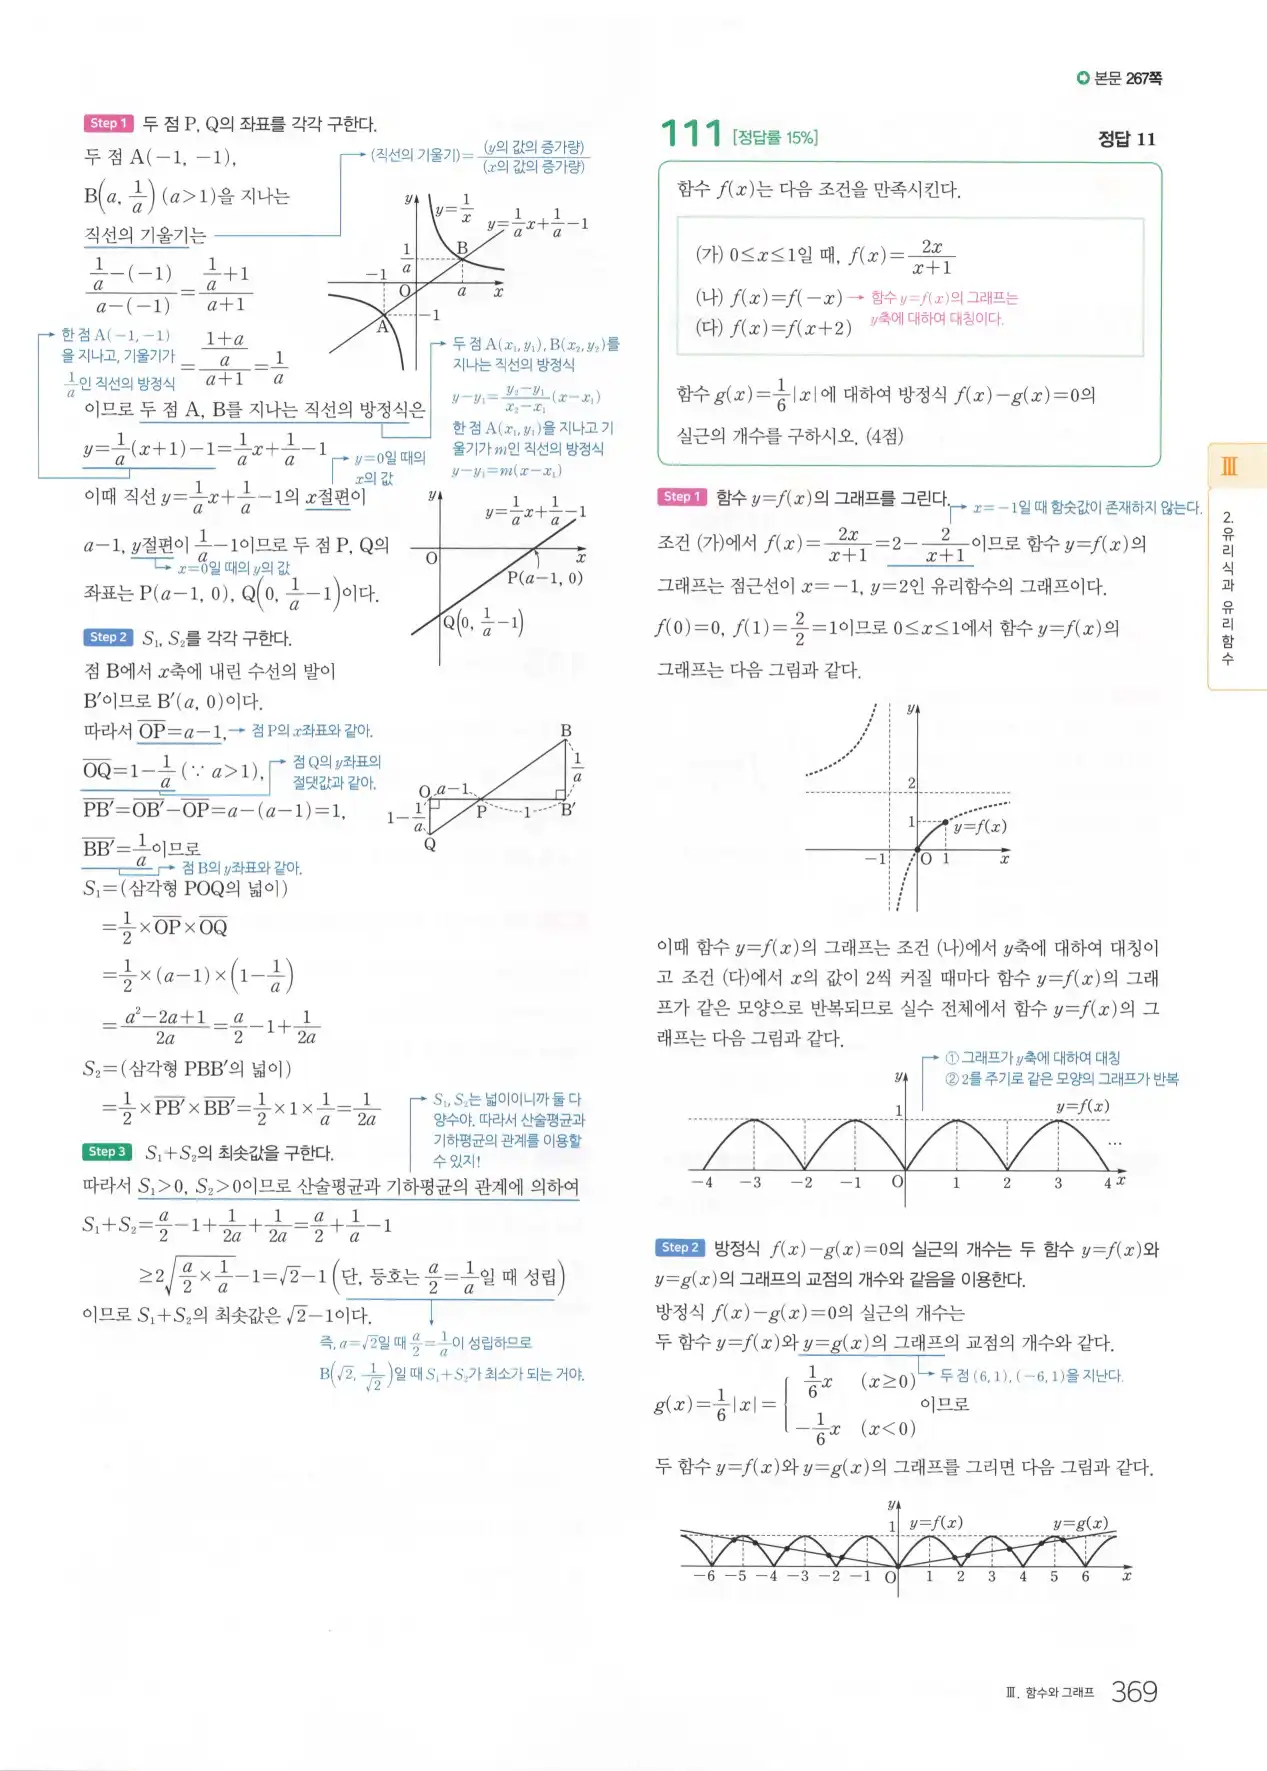 본문 267쪽
Step 1 두 점 P, Q의 좌표를 각각 구한다.
두 점 A(−1, −1),
(직선의 기울기)=(y의 값의 증가량)/(x의 값의 증가량)
B(a, 1/a) (a>1)을 지나는
직선의 기울기는
(1/a−(−1))/(a−(−1))=(1/a+1)/(a+1)
=((1+a)/a)/(a+1)=1/a
한 점 A(−1, −1)
을 지나고, 기울기가
1/a인 직선의 방정식
y
y=1/x
y=1/a x+1/a−1
1/a
B
−1
O
a
x
A
−1
두 점 A(x₁, y₁), B(x₂, y₂)를
지나는 직선의 방정식
y−y₁=(y₂−y₁)/(x₂−x₁)(x−x₁)
한 점 A(x₁, y₁)을 지나고 기
울기가 m인 직선의 방정식
y−y₁=m(x−x₁)
이므로 두 점 A, B를 지나는 직선의 방정식은
y=1/a(x+1)−1=1/a x+1/a−1
y=0일 때의
x의 값
이때 직선 y=1/a x+1/a−1의 x절편이
a−1, y절편이 1/a−1이므로 두 점 P, Q의
x=0일 때의 y의 값
좌표는 P(a−1, 0), Q(0, 1/a−1)이다.
y
y=1/a x+1/a−1
O
x
P(a−1, 0)
Q(0, 1/a−1)
Step 2 S₁, S₂를 각각 구한다.
점 B에서 x축에 내린 수선의 발이
B′이므로 B′(a, 0)이다.
따라서 OP=a−1, 점 P의 x좌표와 같아.
OQ=1−1/a (∵ a>1), 점 Q의 y좌표의
절댓값과 같아.
PB′=OB′−OP=a−(a−1)=1,
BB′=1/a이므로
점 B의 y좌표와 같아.
B
1/a
O a−1
P 1 B′
1−1/a
Q
S₁=(삼각형 POQ의 넓이)
=1/2×OP×OQ
=1/2×(a−1)×(1−1/a)
=(a²−2a+1)/2a=a/2−1+1/2a
S₂=(삼각형 PBB′의 넓이)
=1/2×PB′×BB′=1/2×1×1/a=1/2a
S₁, S₂는 넓이이니까 둘 다
양수야. 따라서 산술평균과
기하평균의 관계를 이용할
수 있지!
Step 3 S₁+S₂의 최솟값을 구한다.
따라서 S₁>0, S₂>0이므로 산술평균과 기하평균의 관계에 의하여
S₁+S₂=a/2−1+1/2a+1/2a=a/2+1/a−1
≥2√(a/2×1/a)−1=√2−1 (단, 등호는 a/2=1/a일 때 성립)
이므로 S₁+S₂의 최솟값은 √2−1이다.
즉, a=√2일 때 a/2=1/a이 성립하므로
B(√2, 1/√2)일 때 S₁+S₂가 최소가 되는 거야.
111 [정답률 15%] 정답 11
함수 f(x)는 다음 조건을 만족시킨다.
(가) 0≤x≤1일 때, f(x)=2x/(x+1)
(나) f(x)=f(−x) → 함수 y=f(x)의 그래프는
y축에 대하여 대칭이다.
(다) f(x)=f(x+2)
함수 g(x)=1/6|x|에 대하여 방정식 f(x)−g(x)=0의
실근의 개수를 구하시오. (4점)
Step 1 함수 y=f(x)의 그래프를 그린다.
x=−1일 때 함숫값이 존재하지 않는다.
조건 (가)에서 f(x)=2x/(x+1)=2−2/(x+1)이므로 함수 y=f(x)의
그래프는 점근선이 x=−1, y=2인 유리함수의 그래프이다.
f(0)=0, f(1)=2/2=1이므로 0≤x≤1에서 함수 y=f(x)의
그래프는 다음 그림과 같다.
y
2
1
y=f(x)
−1 O 1 x
이때 함수 y=f(x)의 그래프는 조건 (나)에서 y축에 대하여 대칭이
고 조건 (다)에서 x의 값이 2씩 커질 때마다 함수 y=f(x)의 그래
프가 같은 모양으로 반복되므로 실수 전체에서 함수 y=f(x)의 그
래프는 다음 그림과 같다.
① 그래프가 y축에 대하여 대칭
② 2를 주기로 같은 모양의 그래프가 반복
y
1
y=f(x)
…
−4 −3 −2 −1 O 1 2 3 4 x
Step 2 방정식 f(x)−g(x)=0의 실근의 개수는 두 함수 y=f(x)와
y=g(x)의 그래프의 교점의 개수와 같음을 이용한다.
방정식 f(x)−g(x)=0의 실근의 개수는
두 함수 y=f(x)와 y=g(x)의 그래프의 교점의 개수와 같다.
두 점 (6, 1), (−6, 1)을 지난다.
g(x)=1/6|x|={ 1/6 x (x≥0)
−1/6 x (x<0) 이므로
두 함수 y=f(x)와 y=g(x)의 그래프를 그리면 다음 그림과 같다.
y
1 y=f(x) y=g(x)
−6 −5 −4 −3 −2 −1 O 1 2 3 4 5 6 x
Ⅲ
2. 유리식과 유리함수
Ⅲ. 함수와 그래프 369